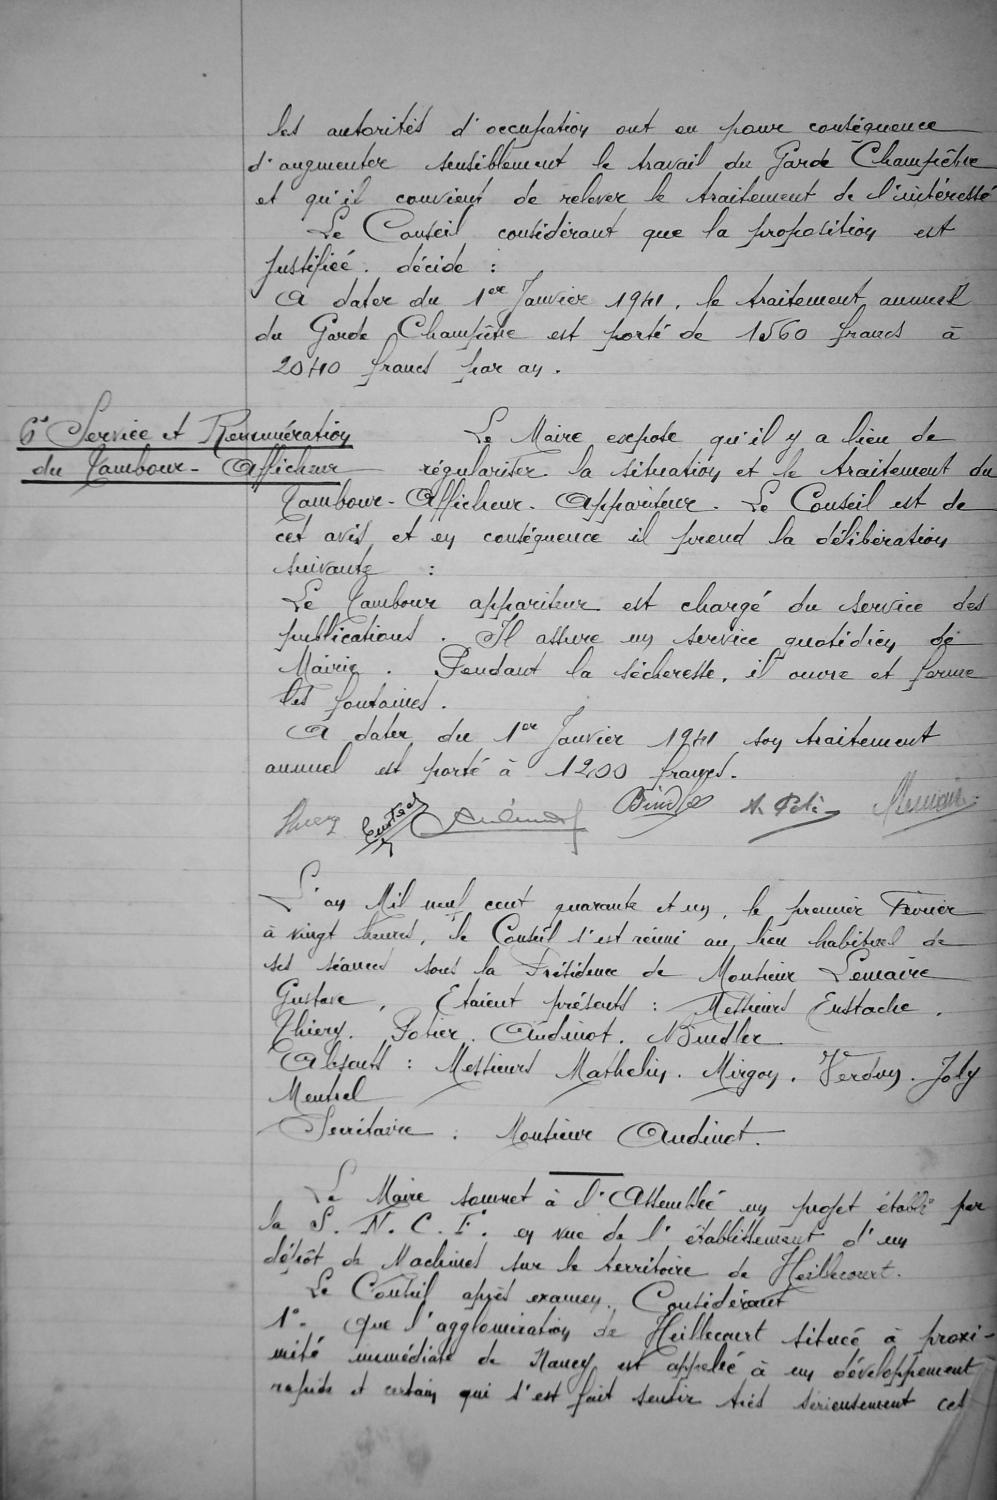 les autorités d'occupation ont eu pour conséquence
d'augmenter sensiblement le travail du Garde Champêtre
et qu'il convient de relever le traitement de l'intéressé
Le Conseil considérant que la proposition est
justifiée. décide :
A dater du 1er Janvier 1941, le traitement annuel
du Garde Champêtre est porté de 1560 francs à
2040 francs par an.
6° Service et Remunération
du Tambour-Afficheur
Le Maire expose qu'il y a lieu de
régulariser la situation et le traitement du
Tambour-Afficheur-Appariteur. Le Conseil est de
cet avis, et en conséquence il prend la délibération
suivante :
Le Tambour appariteur est chargé du service des
publications. Il assure un service quotidien de
Mairie. Pendant la sécheresse, il ouvre et ferme
les fontaines.
A dater du 1er Janvier 1941 son traitement
annuel est porté à 1200 francs.
Thiery Eustache Audinot Bindler
L'an Mil neuf cent quarante et un, le premier Février
à vingt heures, le Conseil s'est réuni au lieu habituel de
ses séances sous la Présidence de Monsieur Lemaire
Gustave, Etaient présents : Messieurs Eustache,
Thiery. Potier. Audinot. Bindler
Absents : Messieurs Mathelin. Mirgon. Verdun. Joly
Menrel
Secrétaire : Monsieur Audinot.
Le Maire soumet à l'Assemblée un projet établi par
la S.N.C.F. en vue de l'établissement d'un
dépôt de Machines sur le territoire de Heillecourt.
Le Conseil après examen. Considérant
1°- Que l'agglomération de Heillecourt située à proxi-
mité immédiate de Nancy est appelée à un développement
rapide et certain qui s'est fait sentir très sérieusement ces